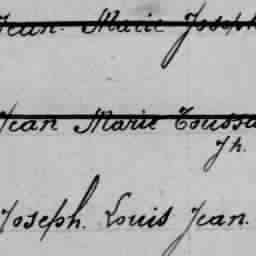 Jean Marie Joseph
Jean Marie Toussa
Jh.
Joseph. Louis Jean.